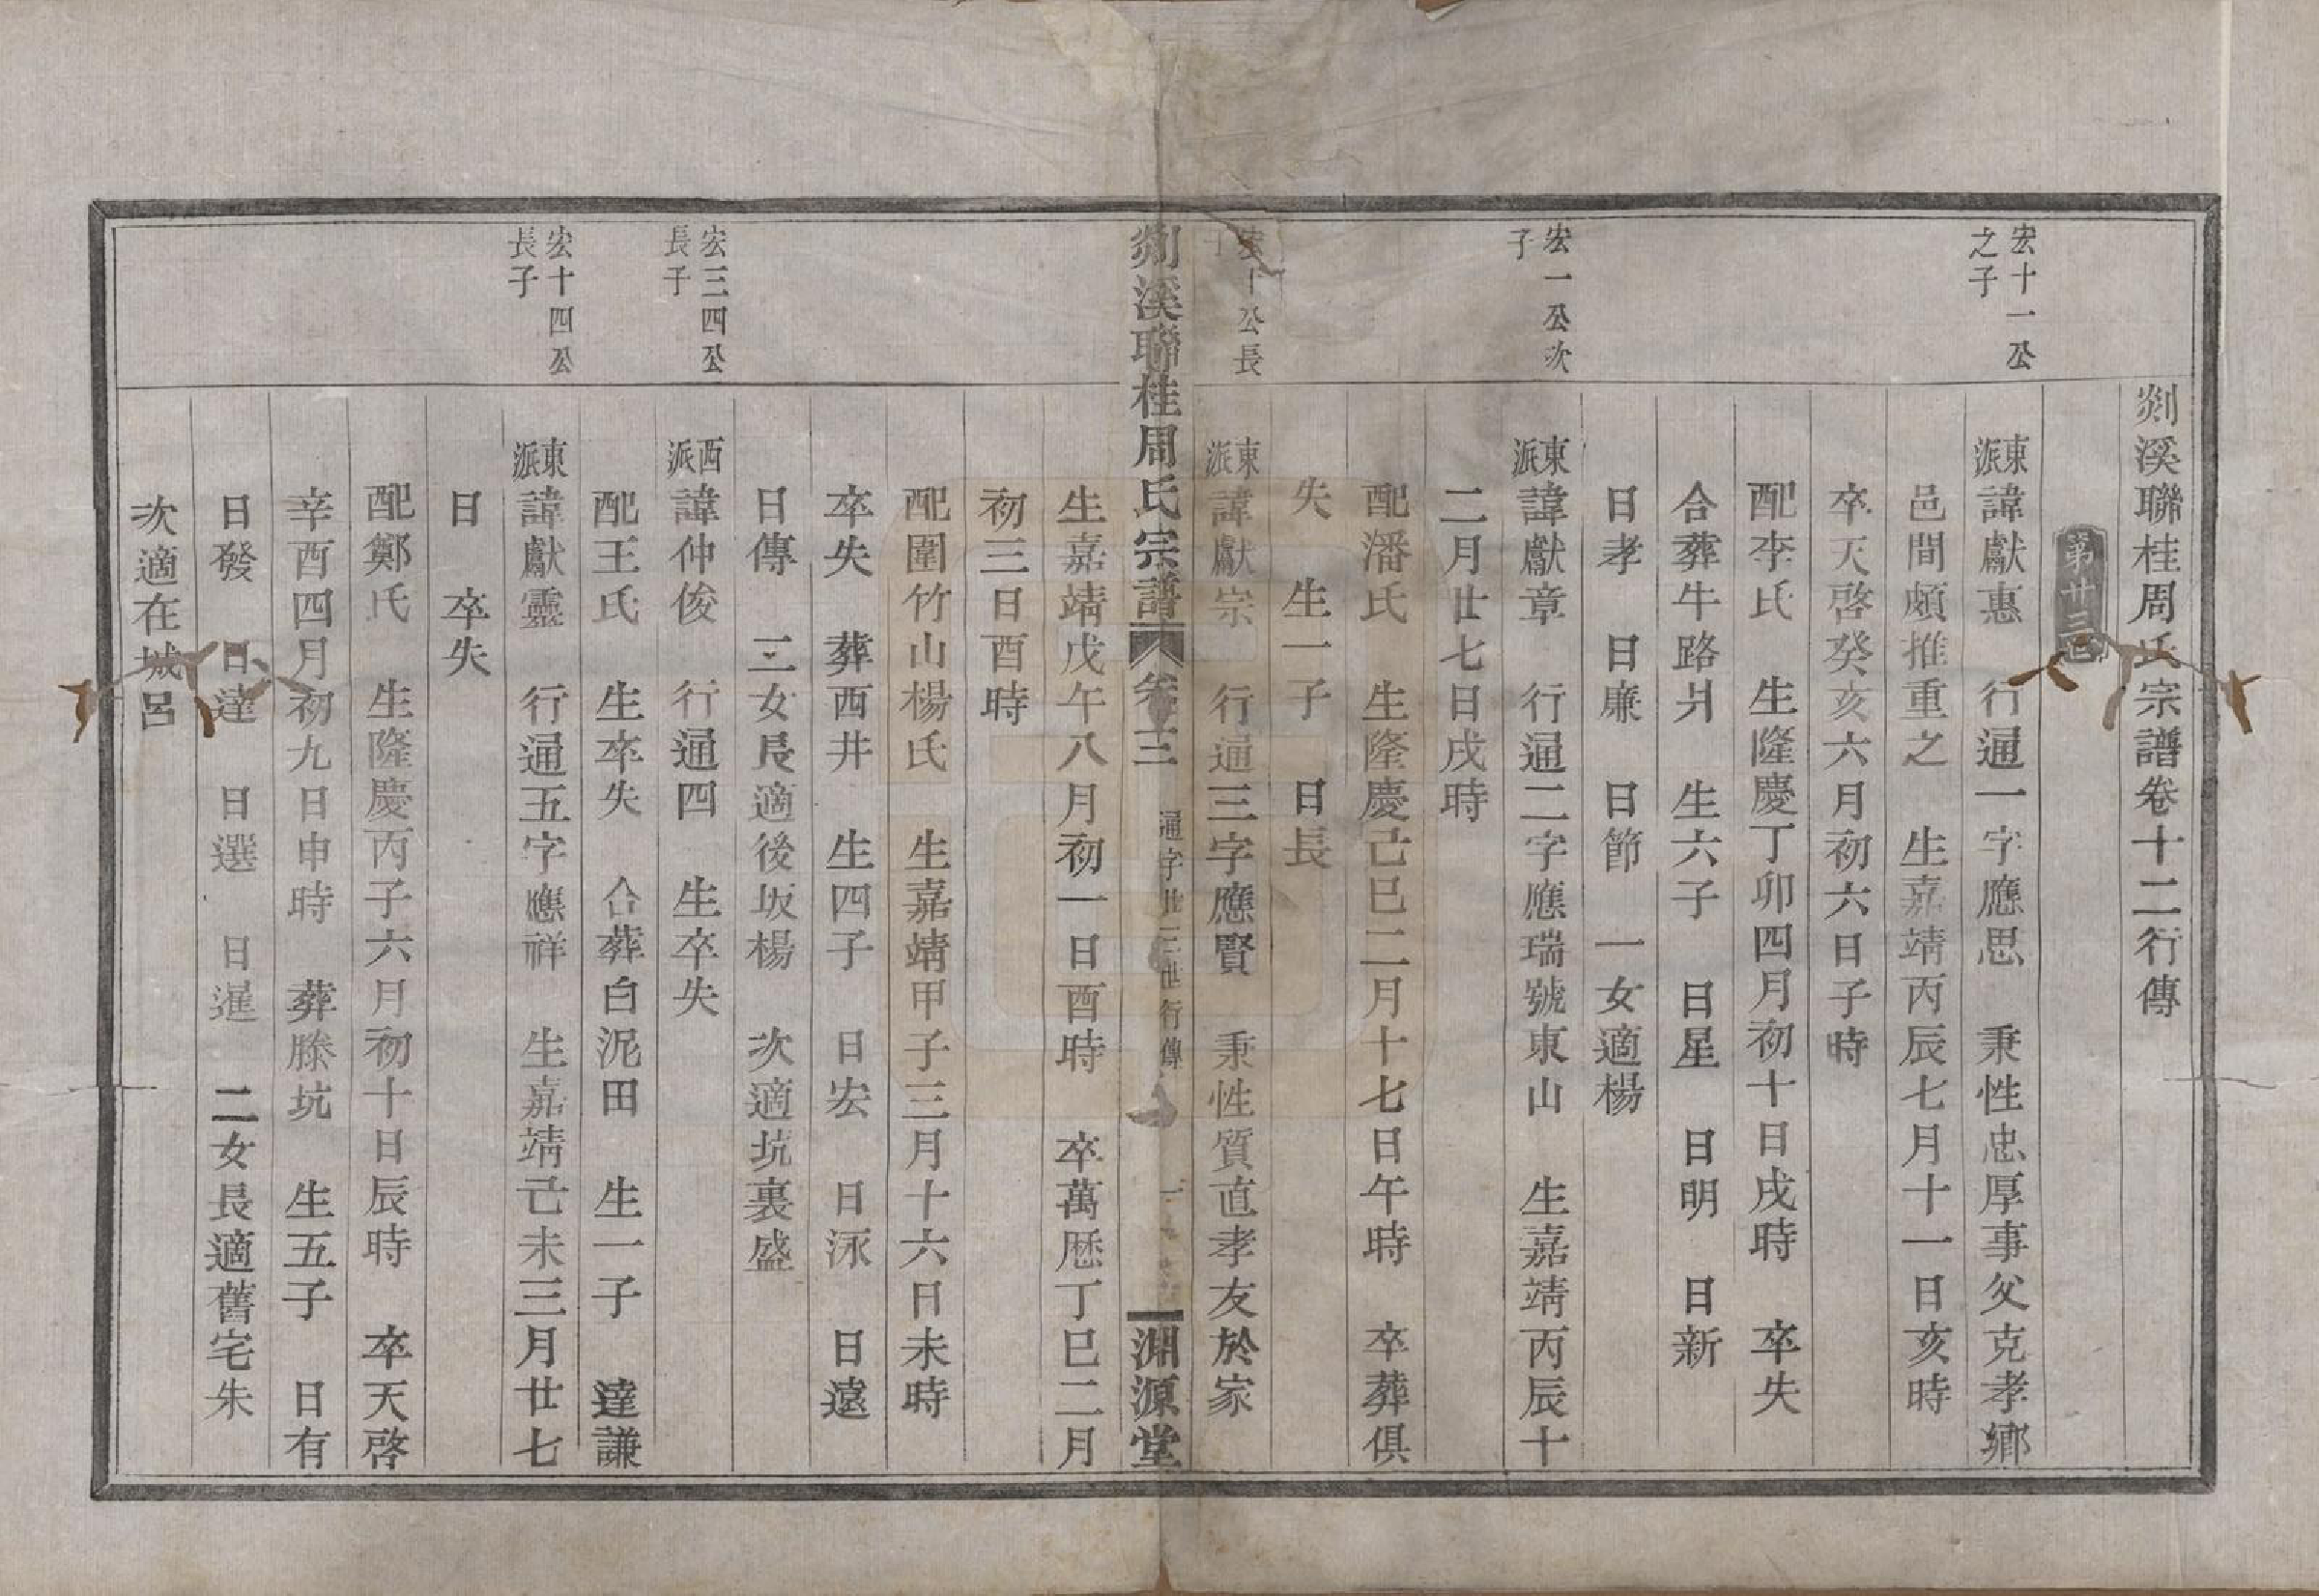 剡溪聯桂周氏宗譜卷十二行傳
第廿三世
宏十一公
之子
東派諱獻惠　行通一字應思　秉性忠厚事父克孝鄉
邑間頗推重之　生嘉靖丙辰七月十一日亥時
卒天啓癸亥六月初六日子時
配李氏　生隆慶丁卯四月初十日戌時　卒失
合葬牛路爿　生六子　日星　日明　日新
日孝　日廉　日節　一女適楊
宏一公次
子
東派諱獻章　行通二字應瑞號東山　生嘉靖丙辰十
二月廿七日戌時
配潘氏　生隆慶己巳二月十七日午時　卒葬俱
失　生一子　日長
宏十公長
子
東派諱獻宗　行通三字應賢　秉性質直孝友於家
剡溪聯桂周氏宗譜　卷三　通字廿三世行傳　一　淵源堂
生嘉靖戊午八月初一日酉時　卒萬歷丁巳二月
初三日酉時
配圍竹山楊氏　生嘉靖甲子三月十六日未時
卒失　葬西井　生四子　日宏　日泳　日遠
日傳　二女長適後坂楊　次適坑裏盛
宏三四公
長子
西派諱仲俊　行通四　生卒失
配王氏　生卒失　合葬白泥田　生一子　達謙
宏十四公
長子
東派諱獻靈　行通五字應祥　生嘉靖己未三月廿七
日　卒失
配鄭氏　生隆慶丙子六月初十日辰時　卒天啓
辛酉四月初九日申時　葬滕坑　生五子　日有
日發　日達　日選　日暹　二女長適舊宅朱
次適在城呂